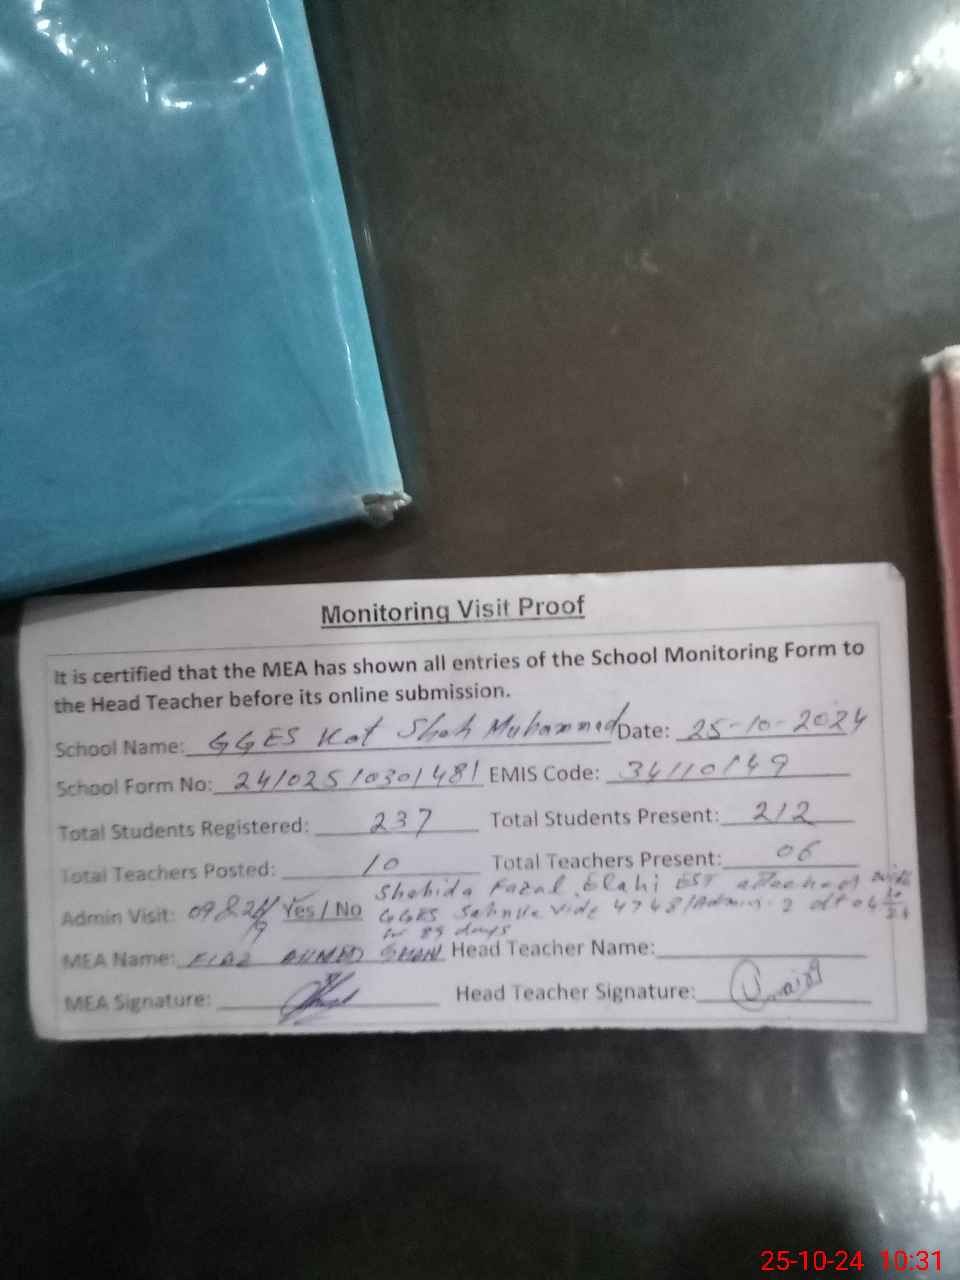 Monitoring Visit Proof
It is certified that the MEA has shown all entries of the School Monitoring Form to
the Head Teacher before its online submission.
School Name: GGES Kot Shah Muhammad Date: 25-10-2024
School Form No: 24102510301481 EMIS Code: 34110149
Total Students Registered: 237 Total Students Present: 212
Total Teachers Posted: 10 Total Teachers Present: 06
Shahida Fazal Elahi EST attached with
Admin Visit: 09 & 24/9 Yes / No GGES Vide 4748/Admin-2 dt 04/10/24
for 89 days
MEA Name: AHMED Head Teacher Name:
MEA Signature: Head Teacher Signature:
25-10-24 10:31